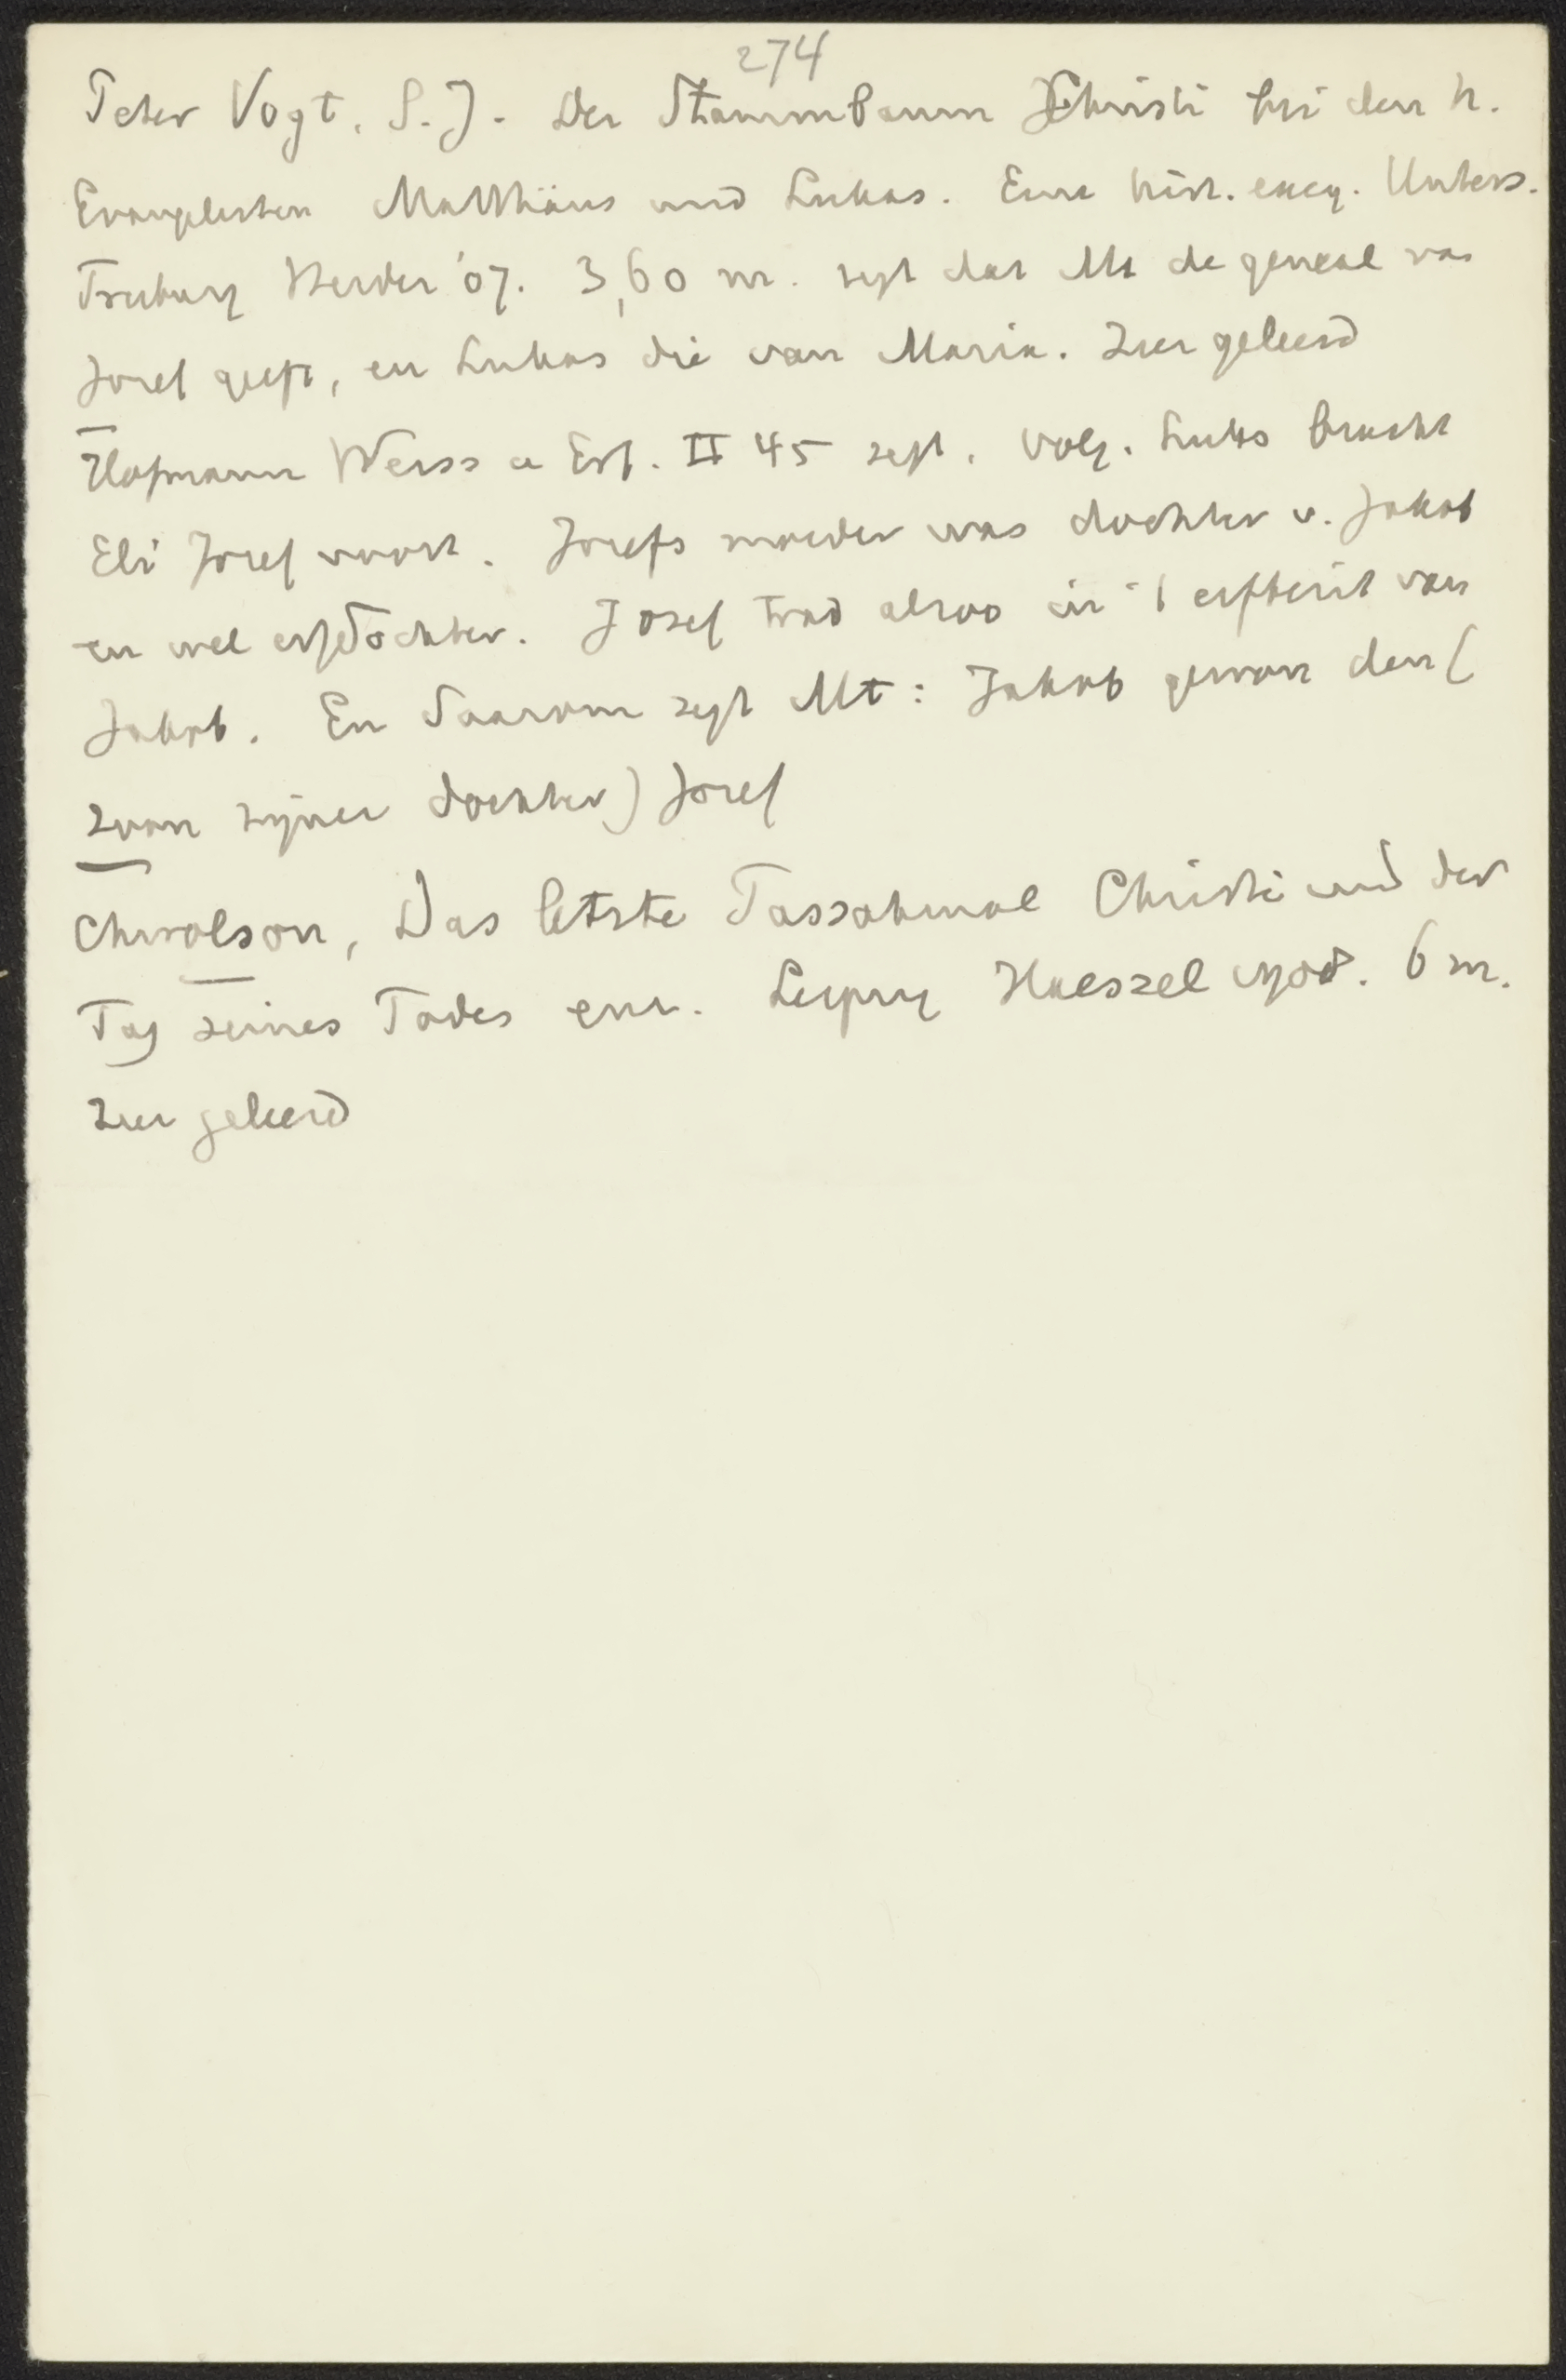 274
Peter Vogt, S.J. Der Stammbaum Christi bei den h.
Evangelisten Matthäus und Lukas. Eine hist. exeg. Unters.
Freiburg Herder '07. 3,60 m. zegt dat Mt de geneal van
Josef geeft, en Lukas die van Maria. Zeer geleerd
Hofmann Weiss u Erf. II 45 zegt. Volg. Lukas bracht
Eli Josef voort. Josefs moeder was dochter v. Jakob
en wel erfdochter. Josef trad alzoo in 't erfbezit van
Jakob. En daarom zegt Mt: Jakob gewon den (
zoon zijner dochter) Josef
Chwolson, Das letzte Passahmal Christi und der
Tag seines Todes enz. Leipzig Haessel 1908. 6 m.
zeer geleerd